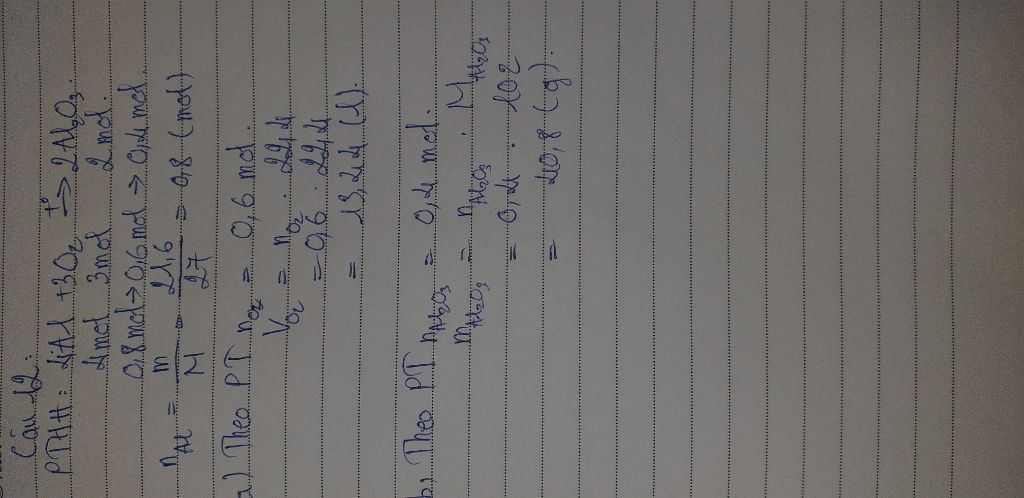 Câu 12:
PTHH: 4Al + 3O₂ t° → 2Al₂O₃.
4mol 3mol 2mol.
0,8mol → 0,6mol → 0,4mol.
nAl = m/M = 21,6/27 = 0,8 (mol)
a) Theo PT nO₂ = 0,6 mol.
VO₂ = nO₂ . 22,4
= 0,6 . 22,4
= 13,44 (l).
b) Theo PT nAl₂O₃ = 0,4 mol.
mAl₂O₃ = nAl₂O₃ . MAl₂O₃
= 0,4 . 102
= 40,8 (g).